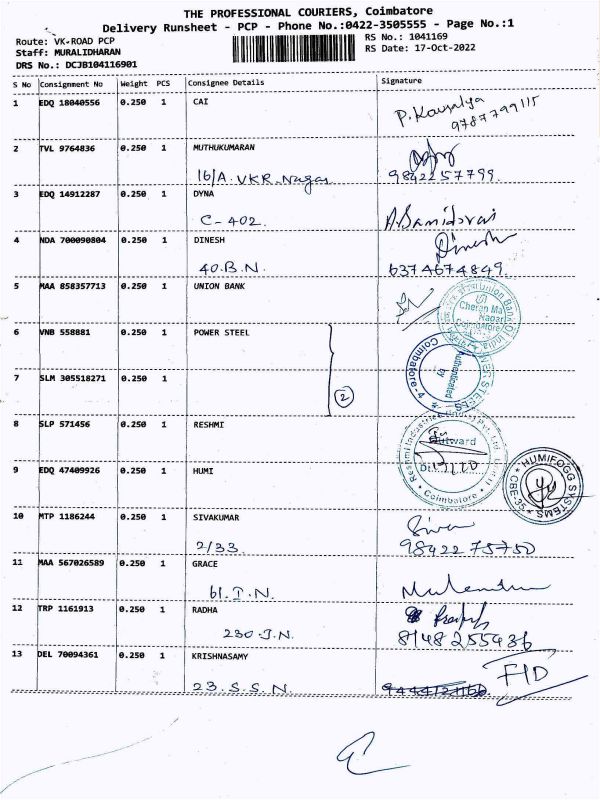 THE PROFESSIONAL COURIERS, Coimbatore
Delivery Runsheet - PCP - Phone No.:0422-3505555 - Page No.:1
Route: VK-ROAD PCP
Staff: MURALIDHARAN
DRS No.: DCJB104116901
RS No.: 1041169
RS Date: 17-Oct-2022
S No Consignment No Weight PCS Consignee Details Signature
1 EDQ 18040556 0.250 1 CAI
P. Kousalya
9787799115
2 TVL 9764836 0.250 1 MUTHUKUMARAN
16/A. VKR. Nagar 9842257799
3 EDQ 14912287 0.250 1 DYNA
C-402.
4 NDA 700090804 0.250 1 DINESH Dinesh
40.B.N. 6374674849.
5 MAA 858357713 0.250 1 UNION BANK
Union Bank Of India
Cheran Ma Nagar
Coimbatore
6 VNB 558881 0.250 1 POWER STEEL
7 SLM 305518271 0.250 1
2
Authenticated by
Coimbatore-4
8 SLP 571456 0.250 1 RESHMI
Reshmi Industries Pvt. Ltd.
Outward
Coimbatore
9 EDQ 47409926 0.250 1 HUMI
HUMIFOGG SYSTEMS
CBE-35
10 MTP 1186244 0.250 1 SIVAKUMAR Siva
2/33. 9842275750
11 MAA 567026589 0.250 1 GRACE
61.I.N.
12 TRP 1161913 0.250 1 RADHA
230.J.N. 8148255436
13 DEL 70094361 0.250 1 KRISHNASAMY
23.S.S.N. FID